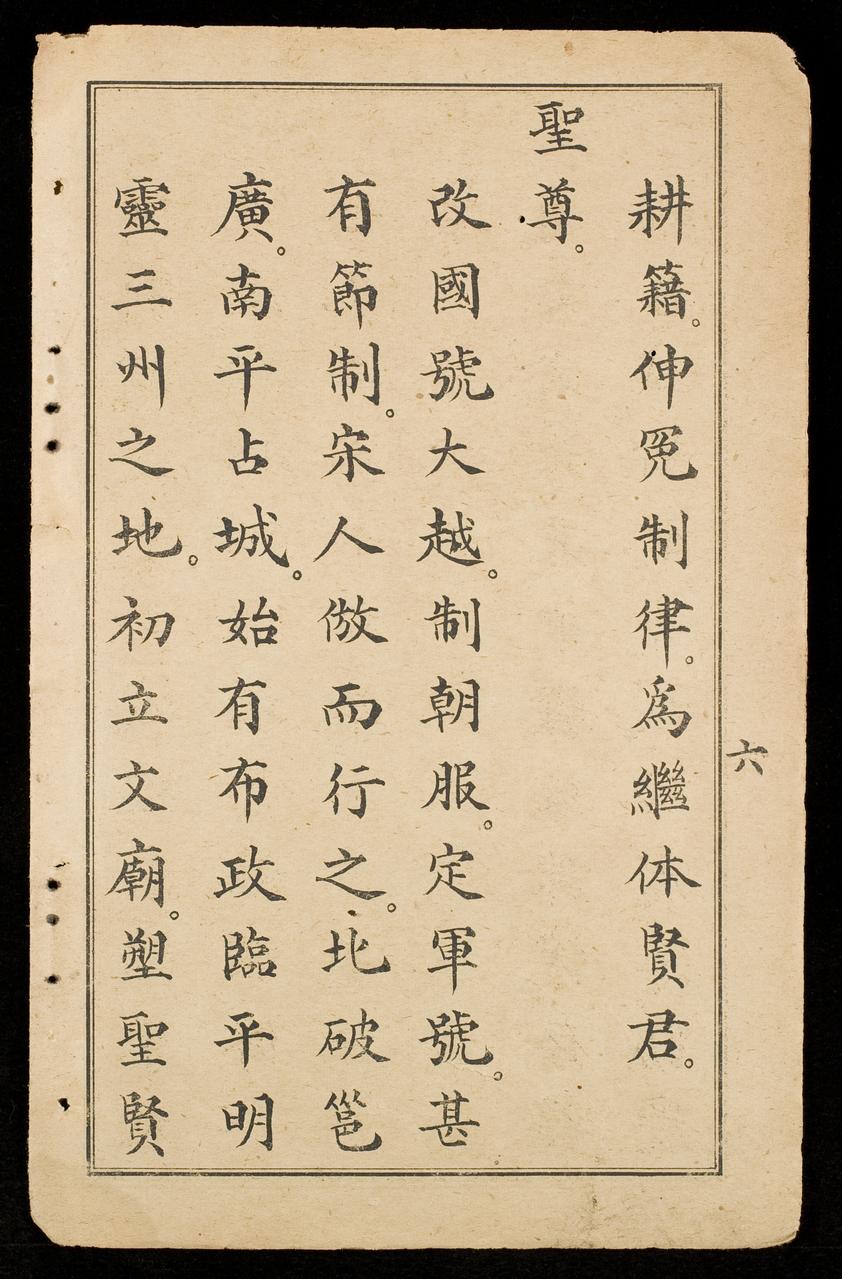 耕籍。伸冤制律。爲繼体賢君。
聖尊。
改國號大越。制朝服。定軍號。甚
有節制。宋人倣而行之。北破邕
廣。南平占城。始有布政臨平明
靈三州之地。初立文廟。塑聖賢
六